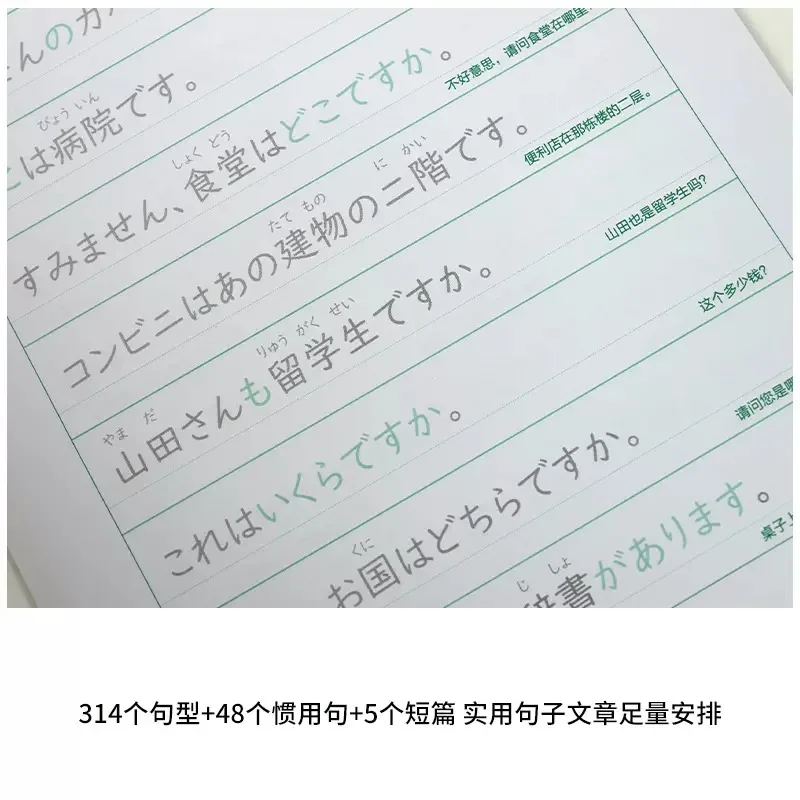 んのカ
は病院です。
びょういん
すみません、食堂はどこですか。
しょく どう
不好意思，请问食堂在哪里
コンビニはあの建物の二階です。
たて もの に かい
便利店在那栋楼的二层。
山田さんも留学生ですか。
やま だ りゅう がく せい
山田也是留学生吗?
これはいくらですか。
这个多少钱?
お国はどちらですか。
くに
请问您是哪
辞書があります。
じ しょ
桌子上
314个句型+48个惯用句+5个短篇 实用句子文章足量安排